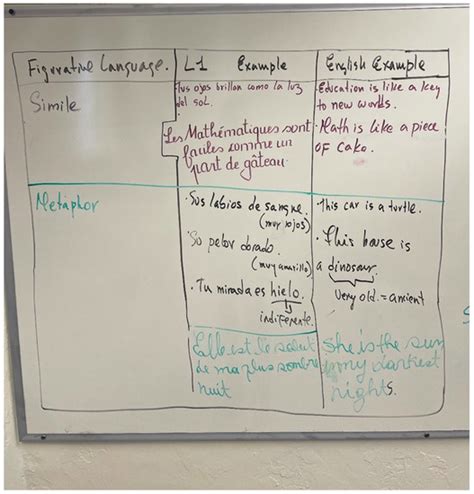 Figurative Language.
L1 Example
English Example
Simile
Tus ojos brillan como la luz
del sol.
Les Mathématiques sont
faciles comme un
part de gâteau
Education is like a key
to new worlds.
Math is like a piece
of cake.
Metaphor
· Sus labios de sangre.
(muy rojos)
· Su pelo dorado.
(muy amarillo)
· Tu mirada es hielo.
indiferente.
Elle est le
de ma plus sombre
nuit
· This car is a turtle.
· This house is
a dinosaur.
very old. = ancient
She is the sun
my darkest
nights.